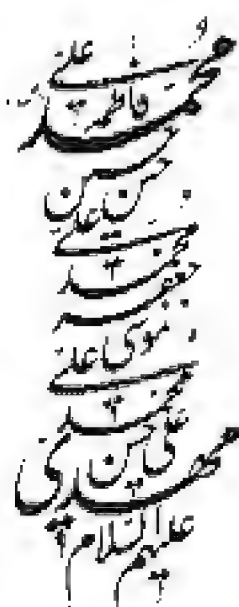 محمد علی
فاطمة
حسن حسین
علی
محمد
جعفر
موسی علی
محمد
علی حسن
مهدی
علیهم السلام